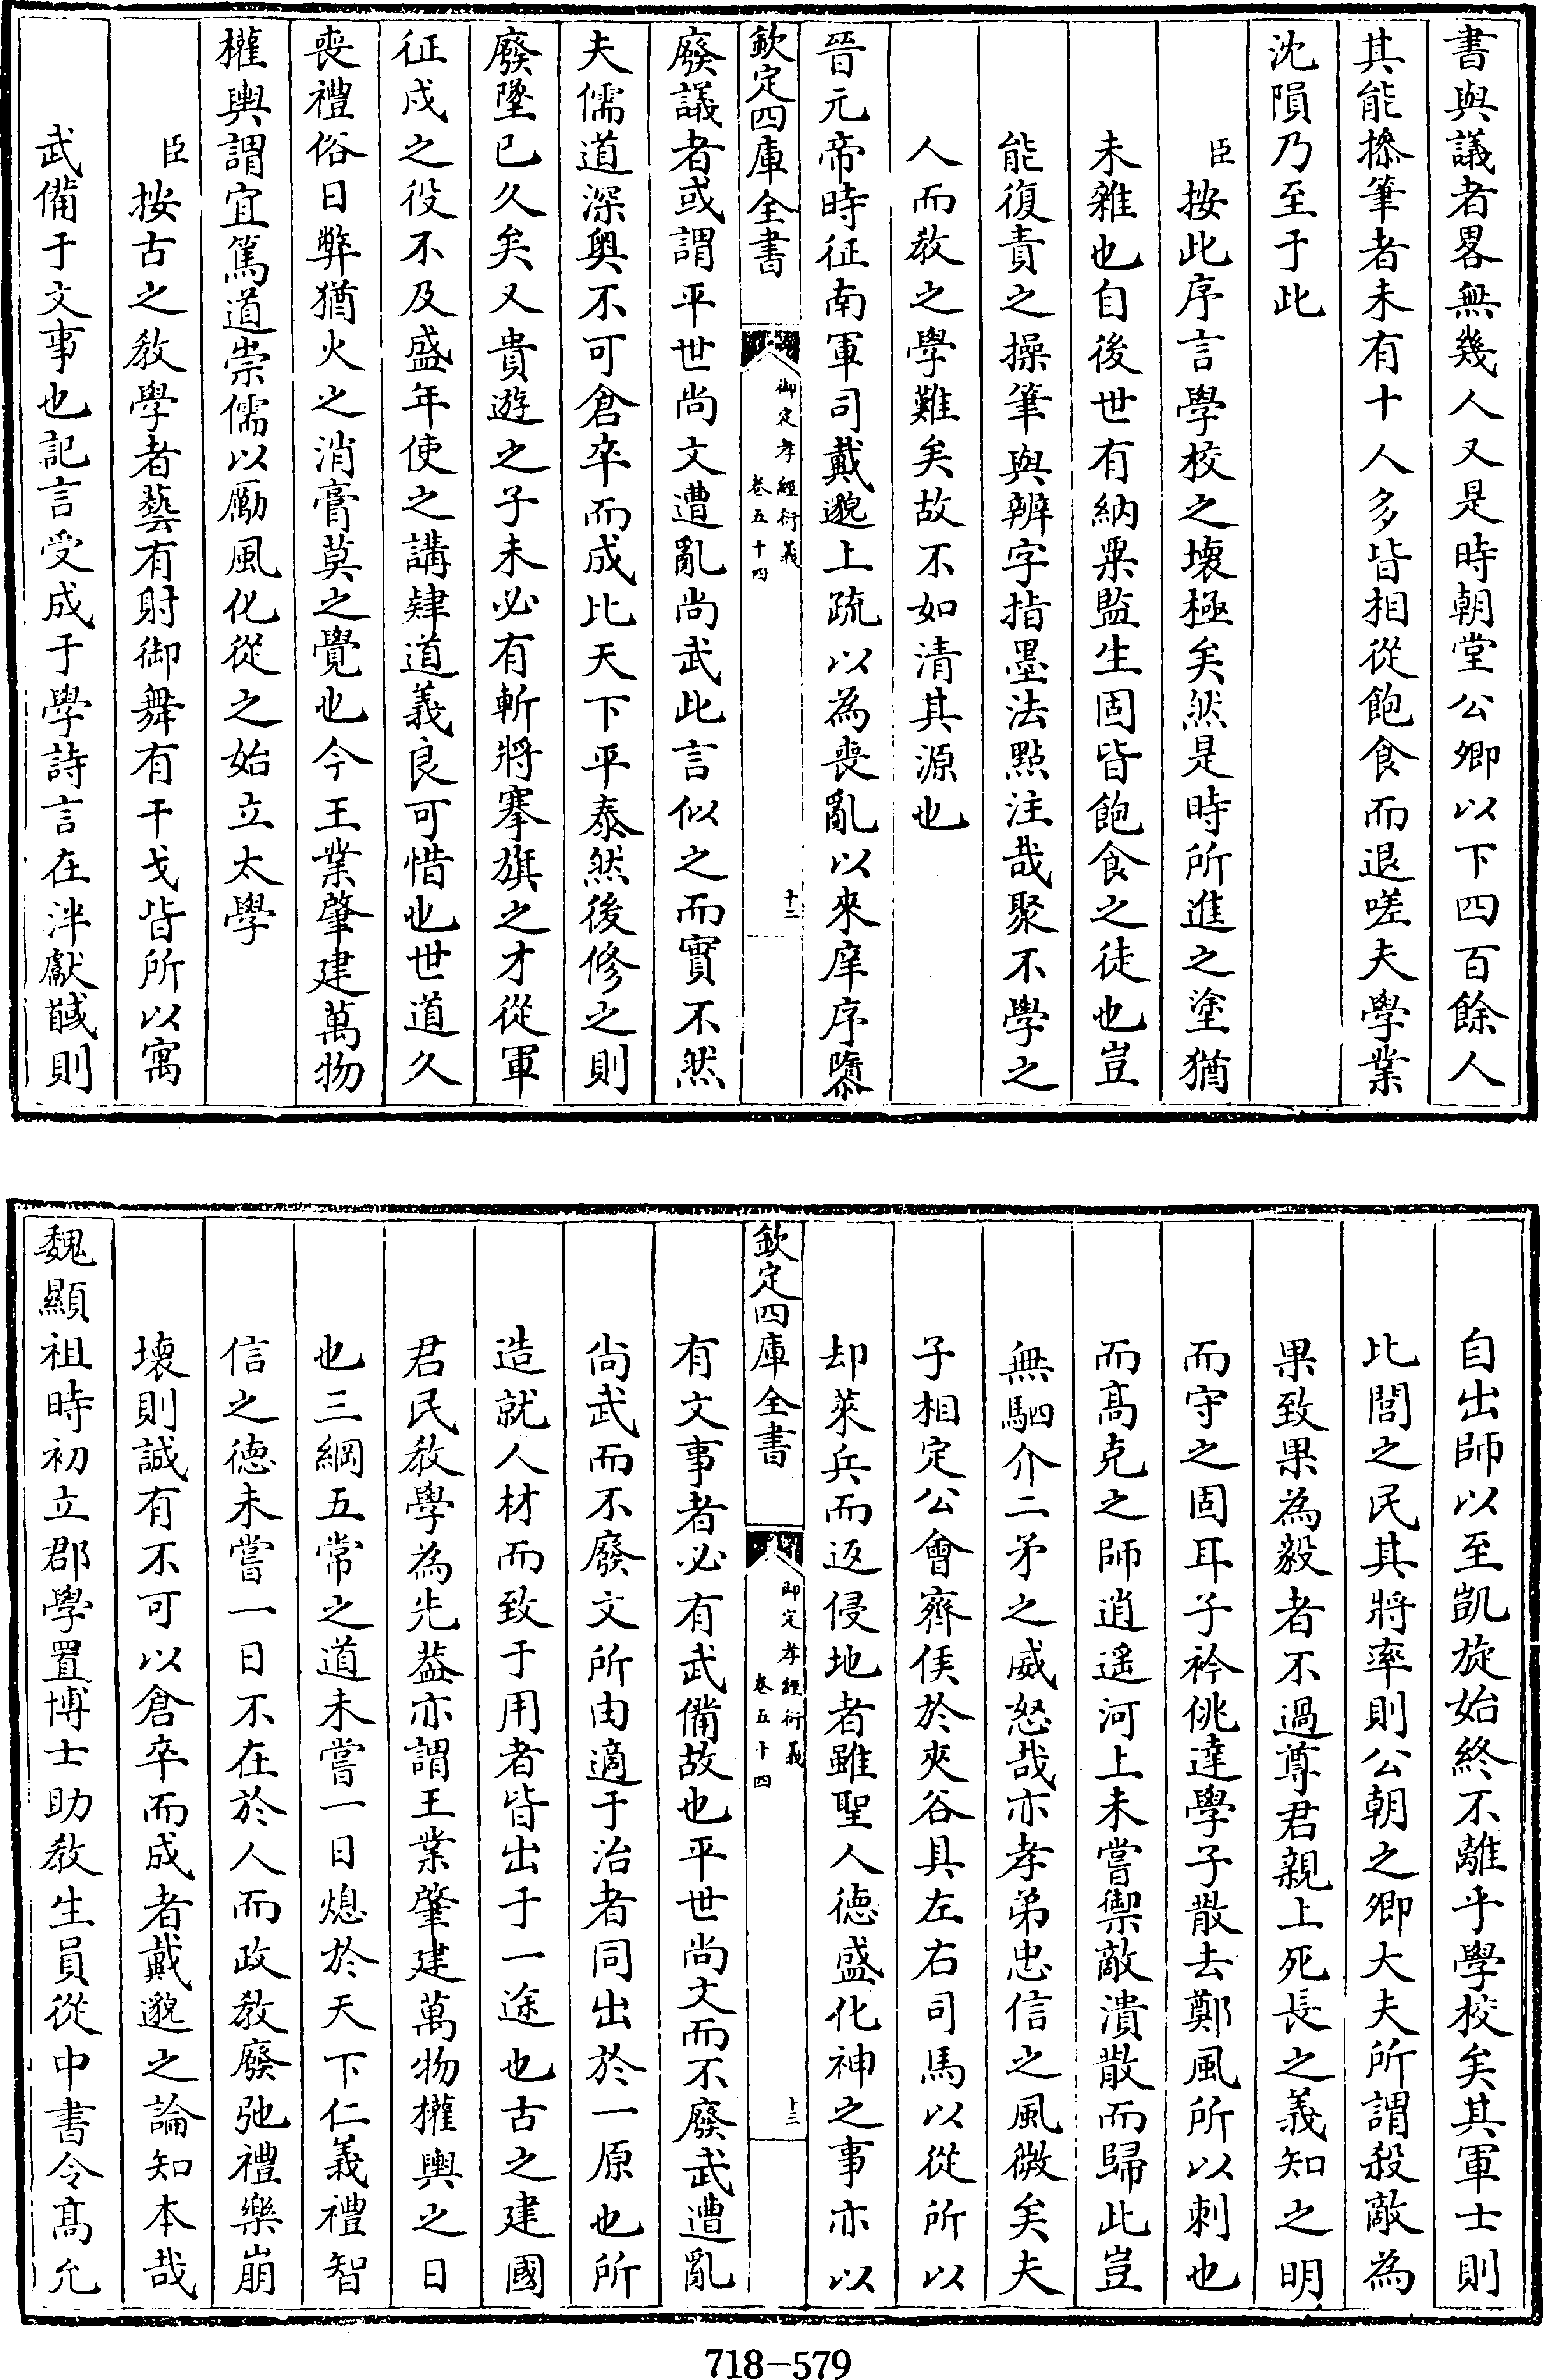 書與議者畧無幾人又是時朝堂公卿以下四百餘人
其能搽筆者未有十人多皆相從飽食而退嗟夫學業
沈隕乃至于此
臣按此序言學校之壞極矣然是時所進之塗猶
未雜也自後世有納粟監生固皆飽食之徒也豈
能復責之操筆與辨字指墨法點注哉聚不學之
人而教之學難矣故不如清其源也
晉元帝時征南軍司戴邈上疏以為喪亂以來庠序隳
欽定四庫全書
御定孝經衍義
卷五十四
十二
廢議者或謂平世尚文遭亂尚武此言似之而實不然
夫儒道深奥不可倉卒而成比天下平泰然後修之則
廢墜已久矣又貴遊之子未必有斬將搴旗之才從軍
征戍之役不及盛年使之講肄道義良可惜也世道久
喪禮俗日弊猶火之消膏莫之覺也今王業肇建萬物
權輿謂宜篤道崇儒以勵風化從之始立太學
臣按古之教學者藝有射御舞有干戈皆所以寓
武備于文事也記言受成于學詩言在泮獻馘則
自出師以至凱旋始終不離乎學校矣其軍士則
比閭之民其將率則公朝之卿大夫所謂殺敵為
果致果為毅者不過尊君親上死長之義知之明
而守之固耳子衿佻達學子散去鄭風所以刺也
而高克之師逍遥河上未嘗禦敵潰散而歸此豈
無駟介二矛之威怒哉亦孝弟忠信之風微矣夫
子相定公會齊侯於夾谷具左右司馬以從所以
却萊兵而返侵地者雖聖人德盛化神之事亦以
欽定四庫全書
御定孝經衍義
卷五十四
十三
有文事者必有武備故也平世尚文而不廢武遭亂
尚武而不廢文所由適于治者同出於一原也所
造就人材而致于用者皆出于一途也古之建國
君民教學為先葢亦謂王業肇建萬物權輿之日
也三綱五常之道未嘗一日熄於天下仁義禮智
信之德未嘗一日不在於人而政教廢弛禮樂崩
壞則誠有不可以倉卒而成者戴邈之論知本哉
魏顯祖時初立郡學置博士助教生員從中書令高允
718-579